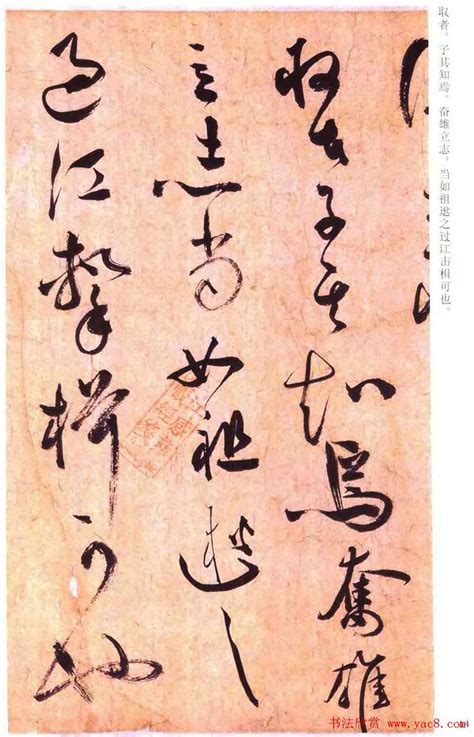 取者。子其知焉。奋雄立志，当如祖逖之过江击楫可也。
取者子其知焉奮雄
立志當如祖逖之
過江擊楫可也
书法欣赏 www.yac8.com